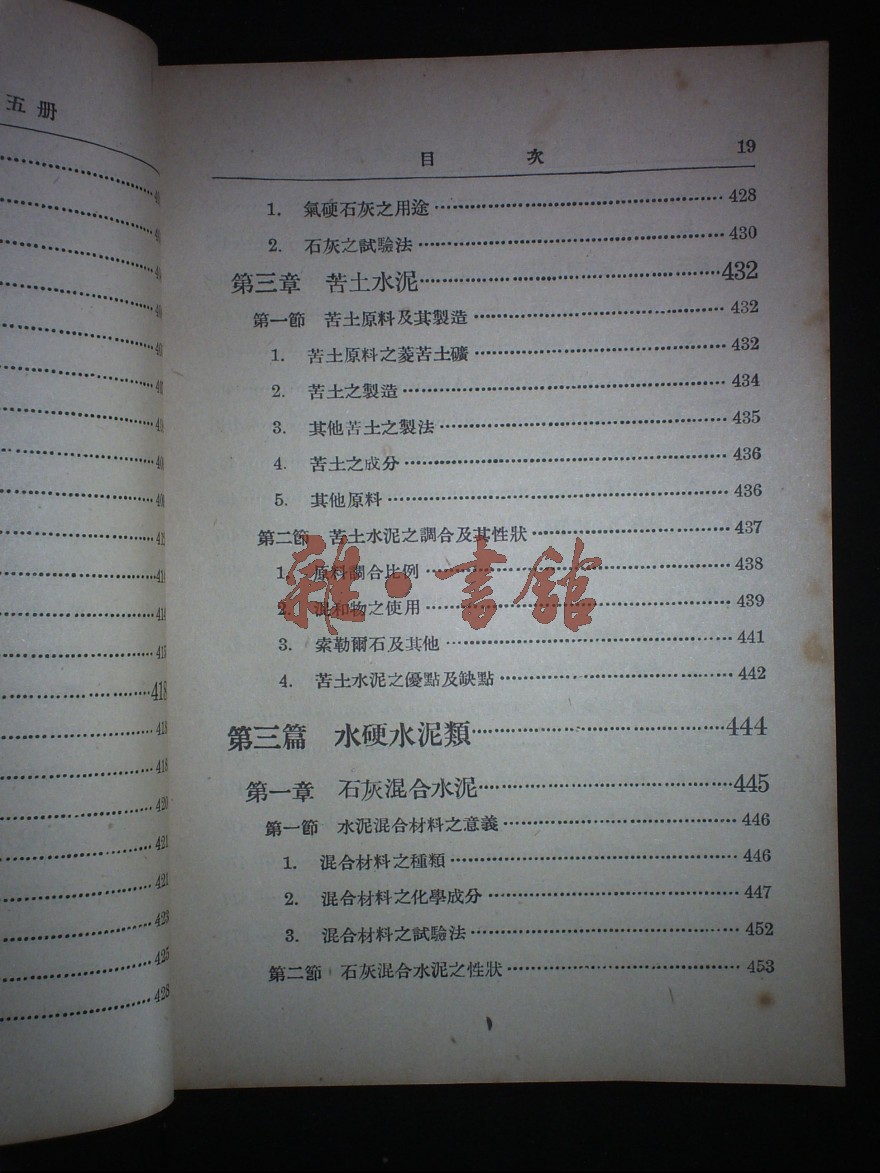 五册
418
418
418
420
421
421
423
425
428
目 次 19
1. 氣硬石灰之用途 428
2. 石灰之試驗法 430
第三章 苦土水泥 432
第一節 苦土原料及其製造 432
1. 苦土原料之菱苦土礦 432
2. 苦土之製造 434
3. 其他苦土之製法 435
4. 苦土之成分 436
5. 其他原料 436
第二節 苦土水泥之調合及其性狀 437
1. 原料調合比例 438
2. 混和物之使用 439
3. 索勒爾石及其他 441
4. 苦土水泥之優點及缺點 442
第三篇 水硬水泥類 444
第一章 石灰混合水泥 445
第一節 水泥混合材料之意義 446
1. 混合材料之種類 446
2. 混合材料之化學成分 447
3. 混合材料之試驗法 452
第二節 石灰混合水泥之性狀 453
雜·書館